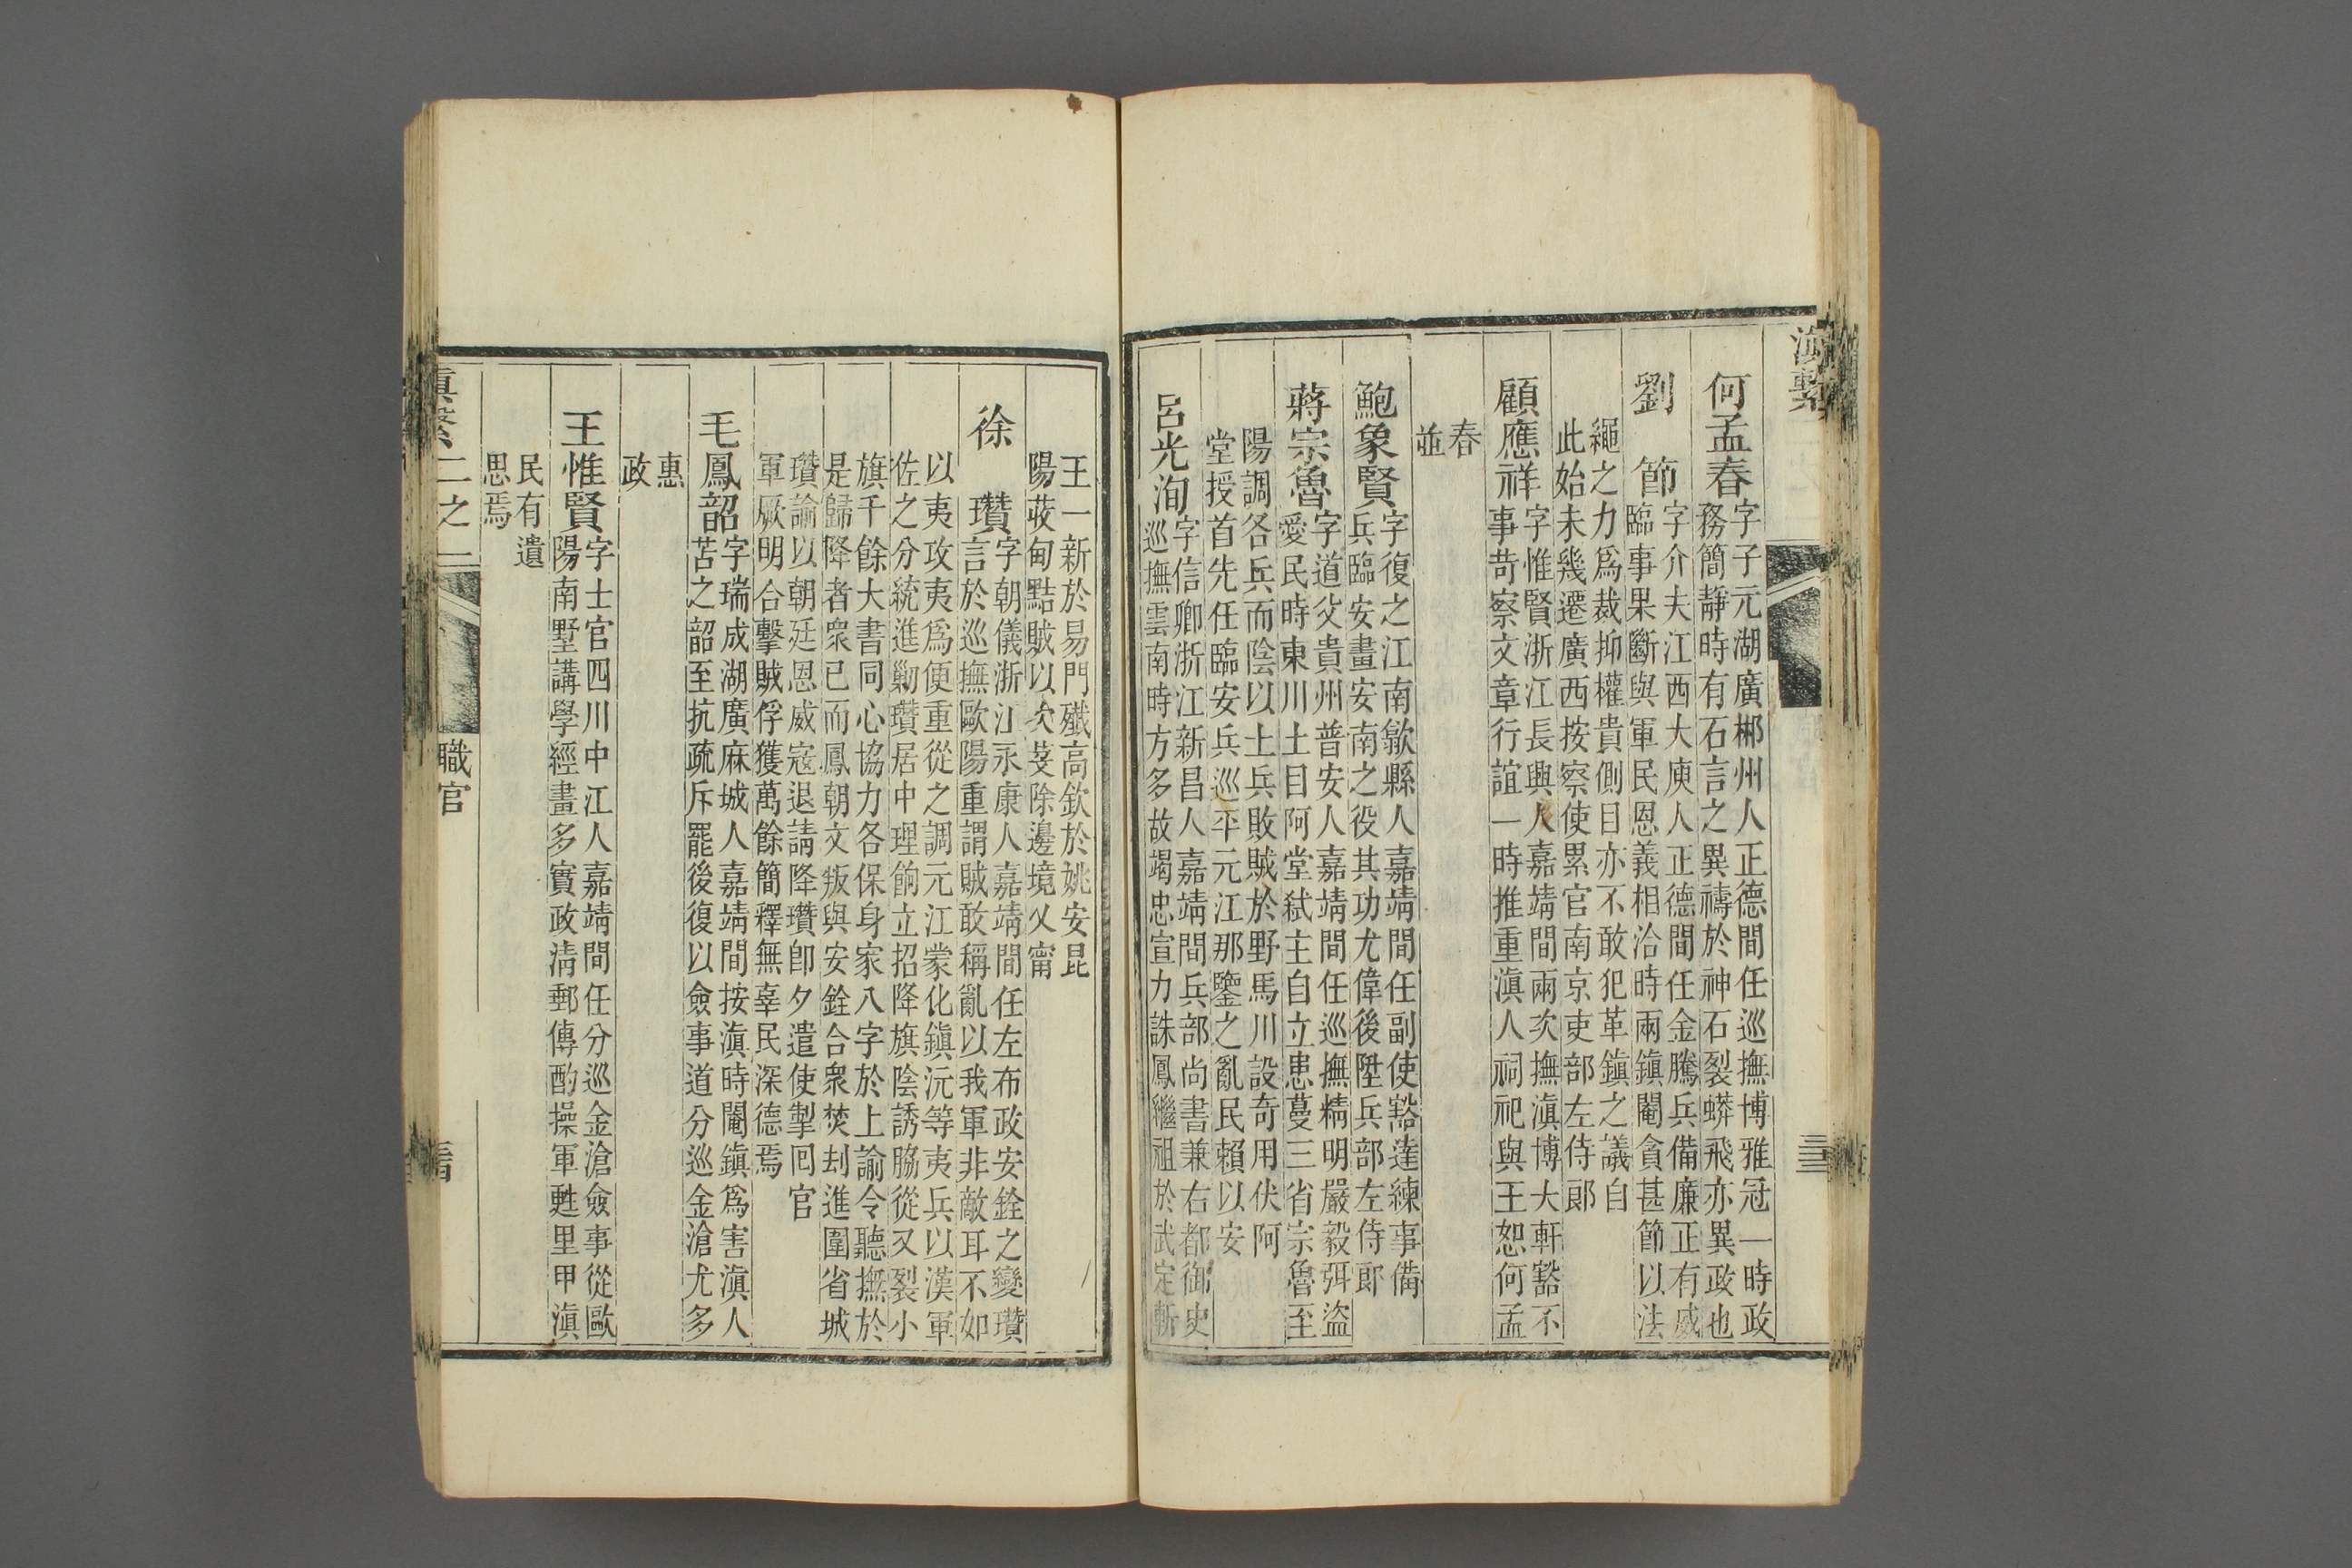 滇繫
何孟春
字子元湖廣郴州人正德間任巡撫博雅冠一時政
務簡靜時有石言之異禱於神石裂蟒飛亦異政也
劉節
字介夫江西大庾人正德間任金騰兵備廉正有威
臨事果斷與軍民恩義相洽時兩鎮閹貪甚節以法
繩之力爲裁抑權貴側目亦不敢犯革鎮之議自
此始未幾遷廣西按察使累官南京吏部左侍郎
顧應祥
字惟賢浙江長興人嘉靖間兩次撫滇博大軒豁不
事苛察文章行誼一時推重滇人祠祀與王恕何孟
春
並
鮑象賢
字復之江南歙縣人嘉靖間任副使豁達練事備
兵臨安畫安南之役其功尤偉後陞兵部左侍郎
蔣宗魯
字道父貴州普安人嘉靖間任巡撫精明嚴毅弭盜
愛民時東川土目阿堂弒主自立患蔓三省宗魯至
陽調各兵而陰以土兵敗賊於野馬川設奇用伏阿
堂授首先任臨安兵巡平元江那鑒之亂民賴以安
呂光洵
字信卿浙江新昌人嘉靖間兵部尚書兼右都御史
巡撫雲南時方多故竭忠宣力誅鳳繼祖於武定斬
王一新於易門殲高欽於姚安昆
陽茭甸點賊以次芟除邊境乂甯
徐瓚
字朝儀浙江永康人嘉靖間任左布政安銓之變瓚
言於巡撫歐陽重謂賊敢稱亂以我軍非敵耳不如
以夷攻夷爲便重從之調元江蒙化鎮沅等夷兵以漢軍
佐之分統進勦瓚居中理餉立招降旗陰誘脇從又裂小
旗千餘大書同心協力各保身家八字於上諭令聽撫於
是歸降者衆已而鳳朝文叛與安銓合衆焚刦進圍省城
瓚諭以朝廷恩威寇退請降瓚卽夕遣使掣囘官
軍厥明合擊賊俘獲萬餘簡釋無辜民深德焉
毛鳳韶
字瑞成湖廣麻城人嘉靖間按滇時閹鎮爲害滇人
苦之韶至抗疏斥罷後復以僉事道分巡金滄尤多
惠
政
王惟賢
字士官四川中江人嘉靖間任分巡金滄僉事從歐
陽南墅講學經畫多實政淸郵傳酌操軍甦里甲滇
民有遺
思焉
滇繫二之二
職官